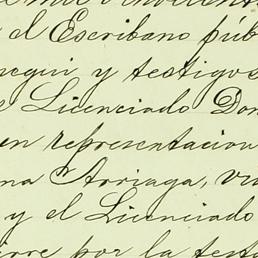 el Escribano púb
segui y testigos
Licenciado Don
en representacion
na Arriaga, viu
y el Licenciado
por la testa